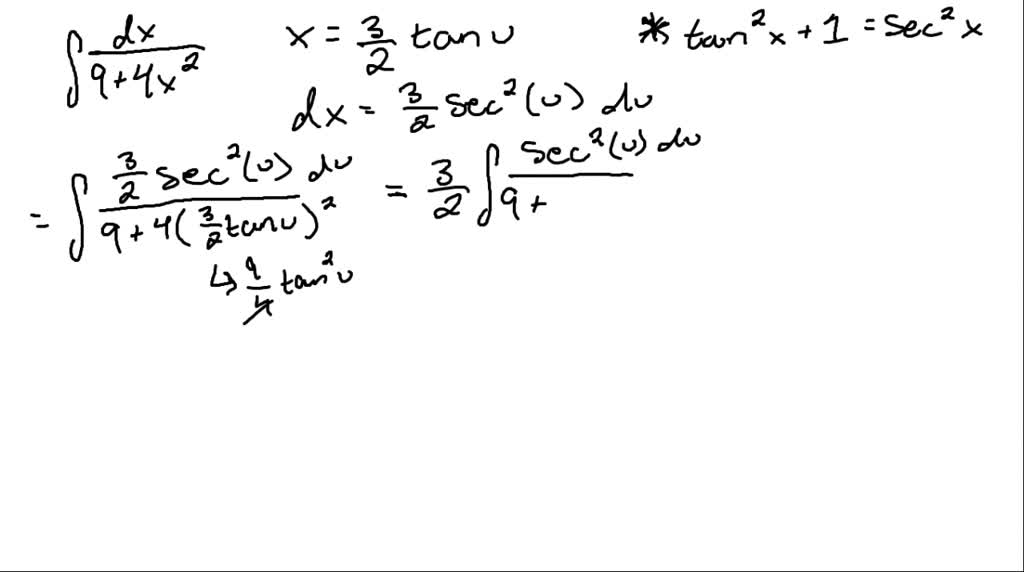 ∫ dx / (9+4x²)   x = 3/2 tan u   * tan²x + 1 = sec²x
dx = 3/2 sec²(u) du
= ∫ 3/2 sec²(u) du / (9+4(3/2 tan u)²) = 3/2 ∫ sec²(u) du / 9+
↳ 9/4 tan²u